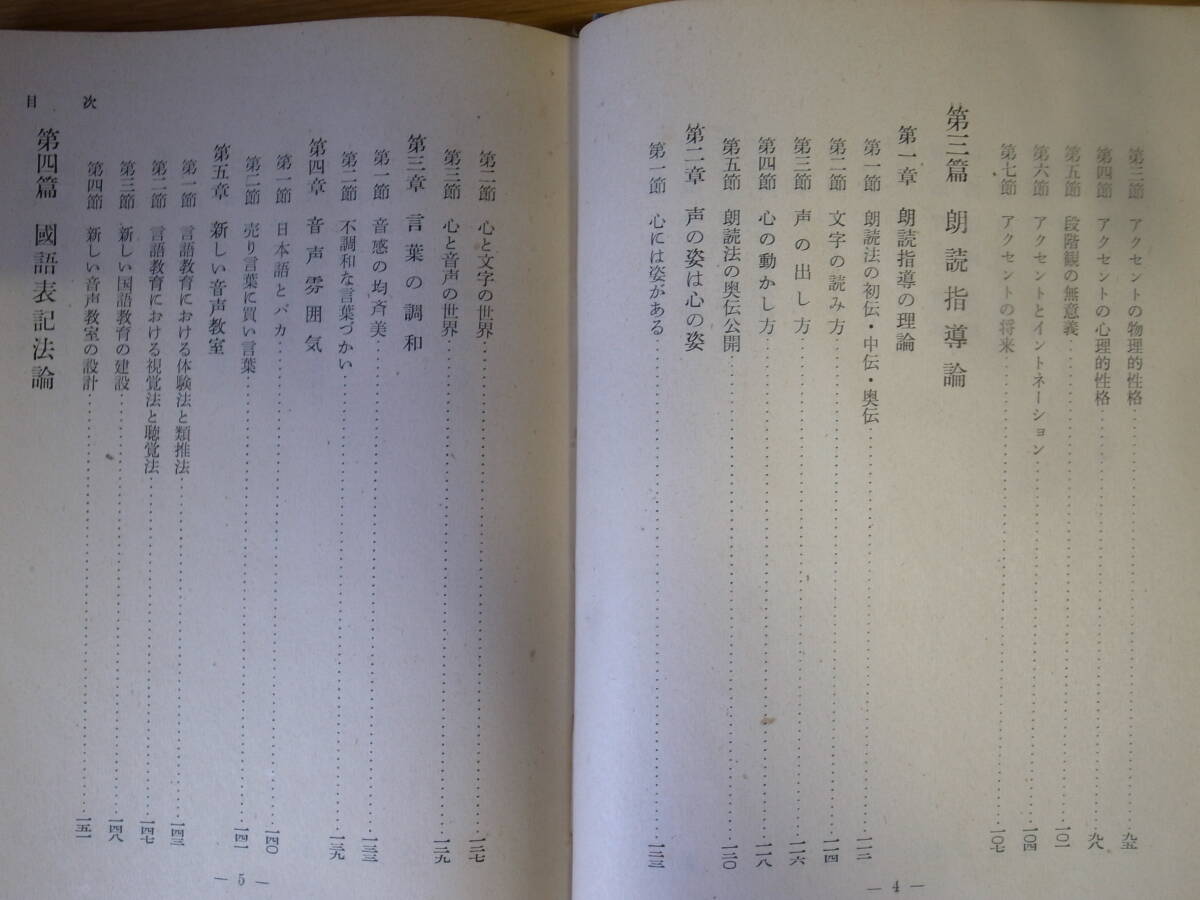 第三節 アクセントの物理的性格……九五
第四節 アクセントの心理的性格……九八
第五節 段階観の無意義……一〇一
第六節 アクセントとイントネーション……一〇四
第七節 アクセントの将来……一〇七
第三篇 朗読指導論
第一章 朗読指導の理論
第一節 朗読法の初伝・中伝・奥伝……一一二
第二節 文字の読み方……一一四
第三節 声の出し方……一一六
第四節 心の動かし方……一一八
第五節 朗読法の奥伝公開……一二〇
第二章 声の姿は心の姿
第一節 心には姿がある……一二三
— 4 —
第二節 心と文字の世界……一二七
第三節 心と音声の世界……一二九
第三章 言葉の調和
第一節 音感の均斉美……一三三
第二節 不調和な言葉づかい……一三九
第四章 音声雰囲気
第一節 日本語とバカ……一四〇
第二節 売り言葉に買い言葉……一四一
第五章 新しい音声教室
第一節 言語教育における体験法と類推法……一四三
第二節 言語教育における視覚法と聴覚法……一四七
第三節 新しい国語教育の建設……一四八
第四節 新しい音声教室の設計……一五一
第四篇 國語表記法論
目次
— 5 —